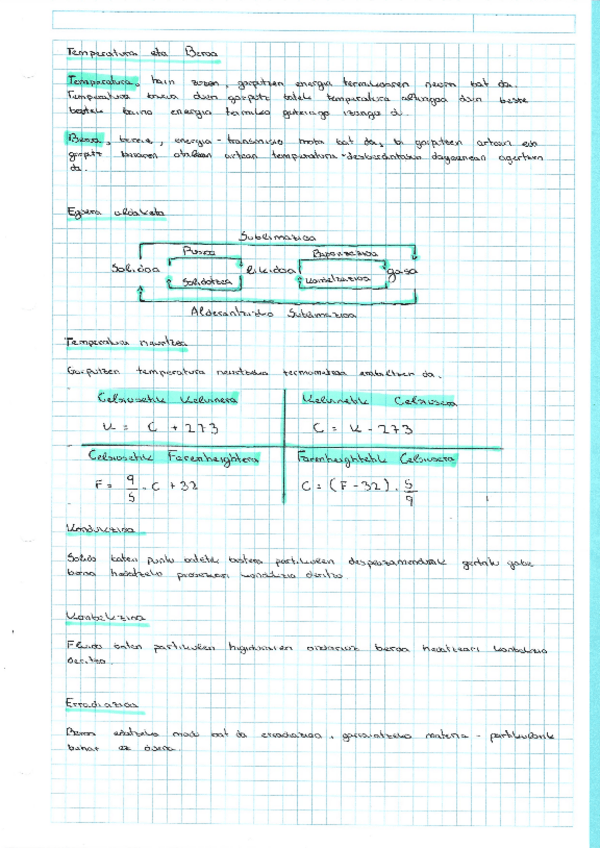 Temperatura eta Beroa
Temperatura, hain zuzen, gorputzen energia termikoaren neurri bat da.
Temperatura duen gorputz batek temperatura duen beste
batek baino energia termiko izango d.
Beroa, berriz, energia-transmisio mota bat da, bi gorputzen artean edo
gorputz beraren artean temperatura-desberdintasuna dagoenean agertzen
da.
Egoera aldaketa
Sublimazioa
Fusioa
Baporizazioa
Solidoa
likidoa
gasa
Solidotzea
Kondentsazioa
Alderantzizko Sublimazioa
Temperatura neurtzea
Gorputzen temperatura neurtzeko termometroa erabiltzen da.
Celsiusetik Kelvinera
Kelvinetik Celsiusera
K = C + 273
C = K - 273
Celsiusetik Farenheightera
Farenheightetik Celsiusera
F = 9/5 · C + 32
C = (F - 32) · 5/9
Kondukzioa
Solido baten puntu batetik bestera partikulen desplazamendurik gertatu gabe
beroa hedatzeko prozesuari kondukzioa deritzo.
Konbekzioa
Fluido baten partikulen higiduraren ondorioz beroa hedatzeari konbekzioa
deritzo.
Erradiazioa
Beroa modu bat da erradiazioa, garraiatzeko materia-partikularik
behar ez duena.